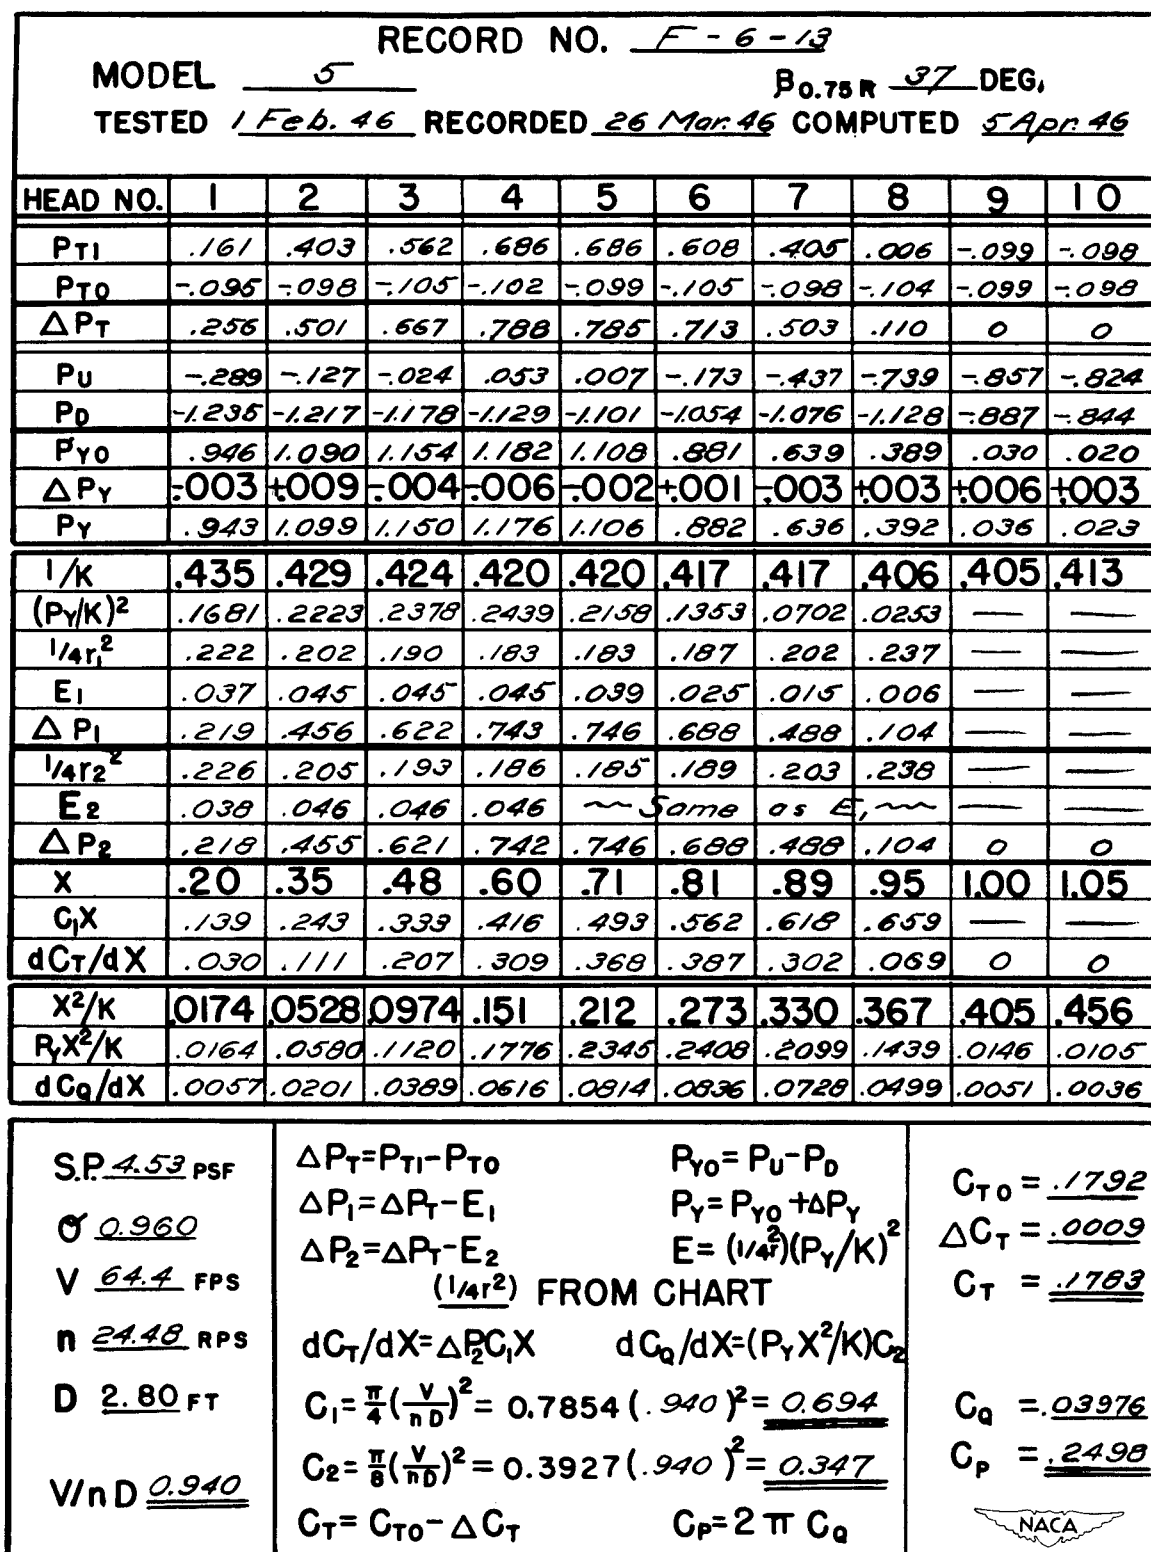 RECORD NO. F-6-13
MODEL 5 β0.75R 37 DEG.
TESTED 1 Feb. 46 RECORDED 26 Mar. 46 COMPUTED 5 Apr. 46
HEAD NO. 1 2 3 4 5 6 7 8 9 10
PT1 .161 .403 .562 .686 .686 .608 .405 .006 -.099 -.098
PTO -.095 -.098 -.105 -.102 -.099 -.105 -.098 -.104 -.099 -.098
△PT .256 .501 .667 .788 .785 .713 .503 .110 0 0
PU -.289 -.127 -.024 .053 .007 -.173 -.437 -.739 -.857 -.824
PD -1.235 -1.217 -1.178 -1.129 -1.101 -1.054 -1.076 -1.128 -.887 -.844
PYO .946 1.090 1.154 1.182 1.108 .881 .639 .389 .030 .020
△PY -.003 +.009 -.004 -.006 -.002 +.001 -.003 +.003 +.006 +.003
PY .943 1.099 1.150 1.176 1.106 .882 .636 .392 .036 .023
1/K .435 .429 .424 .420 .420 .417 .417 .406 .405 .413
(PY/K)² .1681 .2223 .2378 .2439 .2158 .1353 .0702 .0253 — —
1/4r₁² .222 .202 .190 .183 .183 .187 .202 .237 — —
E1 .037 .045 .045 .045 .039 .025 .015 .006 — —
△P1 .219 .456 .622 .743 .746 .688 .488 .104 — —
1/4r₂² .226 .205 .193 .186 .185 .189 .203 .238 — —
E2 .038 .046 .046 .046 ~ Same as E, ~ — —
△P2 .218 .455 .621 .742 .746 .688 .488 .104 0 0
X .20 .35 .48 .60 .71 .81 .89 .95 1.00 1.05
C₁X .139 .243 .333 .416 .493 .562 .618 .659 — —
dCT/dX .030 .111 .207 .309 .368 .387 .302 .069 0 0
X²/K .0174 .0528 .0974 .151 .212 .273 .330 .367 .405 .456
PYX²/K .0164 .0580 .1120 .1776 .2345 .2408 .2099 .1439 .0146 .0105
dCQ/dX .0057 .0201 .0389 .0616 .0814 .0836 .0728 .0499 .0051 .0036
S.P. 4.53 PSF
σ 0.960
V 64.4 FPS
n 24.48 RPS
D 2.80 FT
V/nD 0.940
△PT=PT1-PTO PYO=PU-PD
△P1=△PT-E1 PY=PYO+△PY
△P2=△PT-E2 E=(1/4r²)(PY/K)²
(1/4r²) FROM CHART
dCT/dX=△P2C₁X dCQ/dX=(PYX²/K)C₂
C₁=π/4(V/nD)²=0.7854(.940)²=0.694
C₂=π/8(V/nD)²=0.3927(.940)²=0.347
CT=CTO-△CT CP=2πCQ
CTO=.1792
△CT=.0009
CT=.1783
CQ=.03976
CP=.2498
NACA